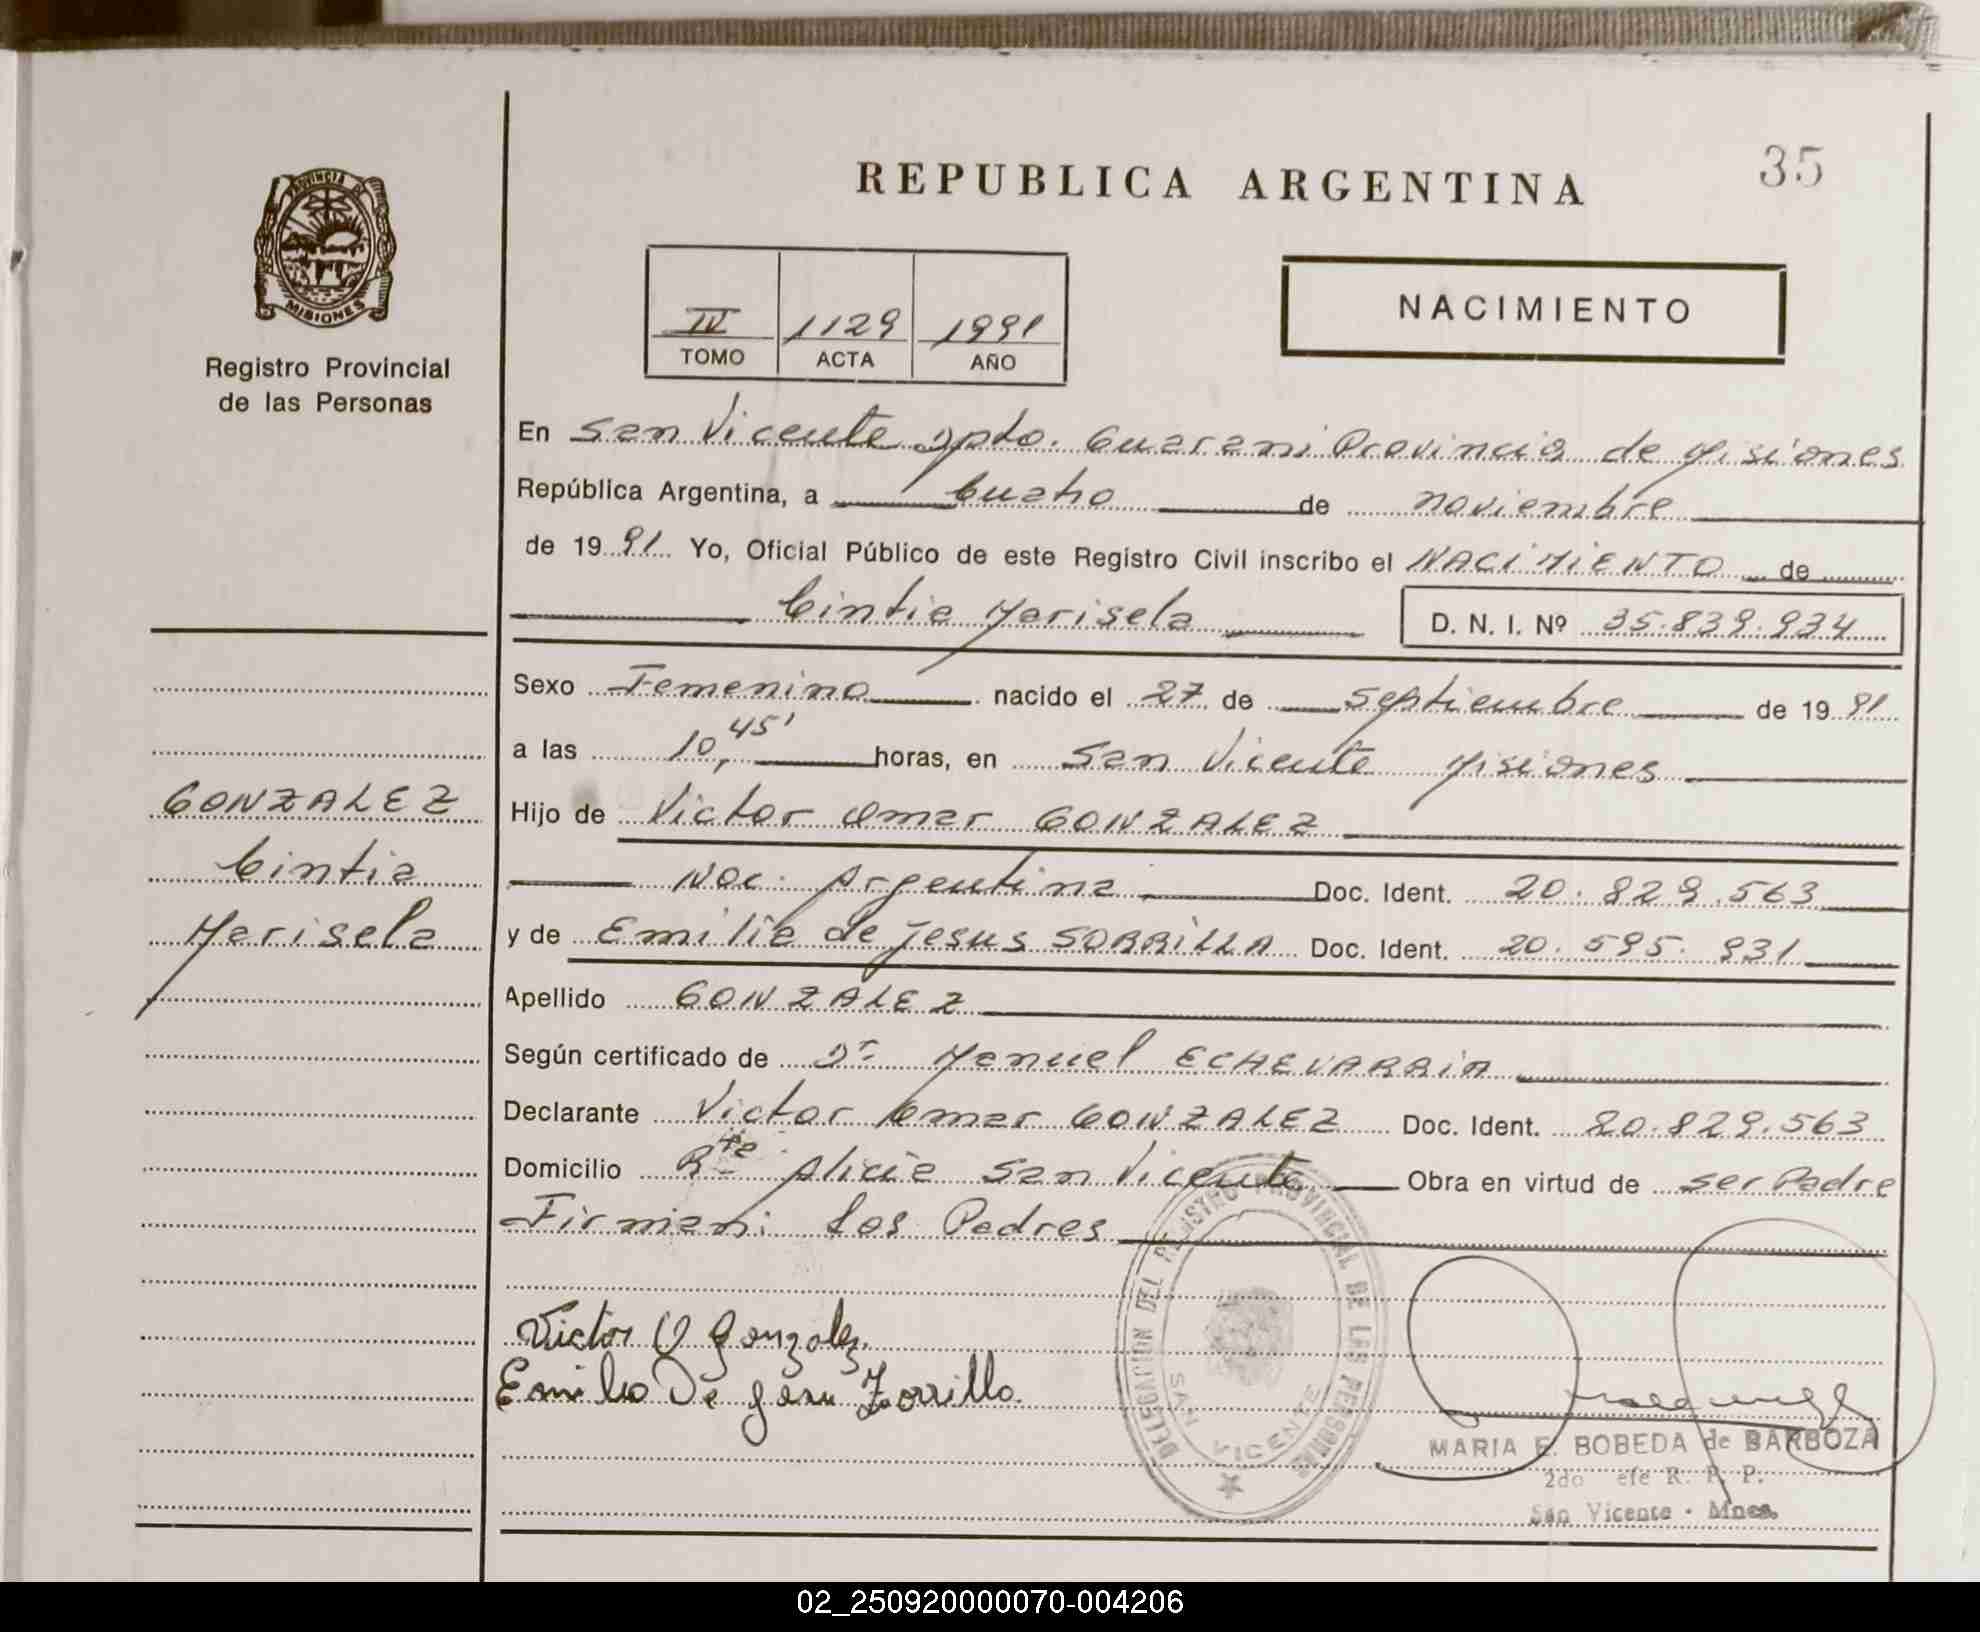 REPUBLICA ARGENTINA
35
PROVINCIA DE
MISIONES
Registro Provincial
de las Personas
IV 1129 1991
TOMO ACTA AÑO
NACIMIENTO
En San Vicente Dpto. Guarani Provincia de Misiones
República Argentina, a Cuatro de noviembre
de 1991 Yo, Oficial Público de este Registro Civil inscribo el NACIMIENTO de
Cintia Marisela D. N. I. Nº 35.839.934
Sexo Femenino nacido el 27 de septiembre de 1991
a las 10,45' horas, en San Vicente Misiones
Hijo de Victor Omar GONZALEZ
Nac. Argentina Doc. Ident. 20.829.563
y de Emilia de Jesus SORRILLA Doc. Ident. 20.595.931
Apellido GONZALEZ
Según certificado de Dr Manuel ECHEVARRIA
Declarante Victor Omar GONZALEZ Doc. Ident. 20.829.563
Domicilio Rte Alicia San Vicente Obra en virtud de ser Padre
Firman: los Padres
GONZALEZ
Cintia
Marisela
Victor O Gonzalez.
Emilia De Jesu Zorrilla.
DELEGACION DEL REGISTRO PROVINCIAL DE LAS PERSONAS
SAN VICENTE
MARIA E. BOBEDA de BARBOZA
2do efe R. P. P.
San Vicente - Mnes.
02_250920000070-004206